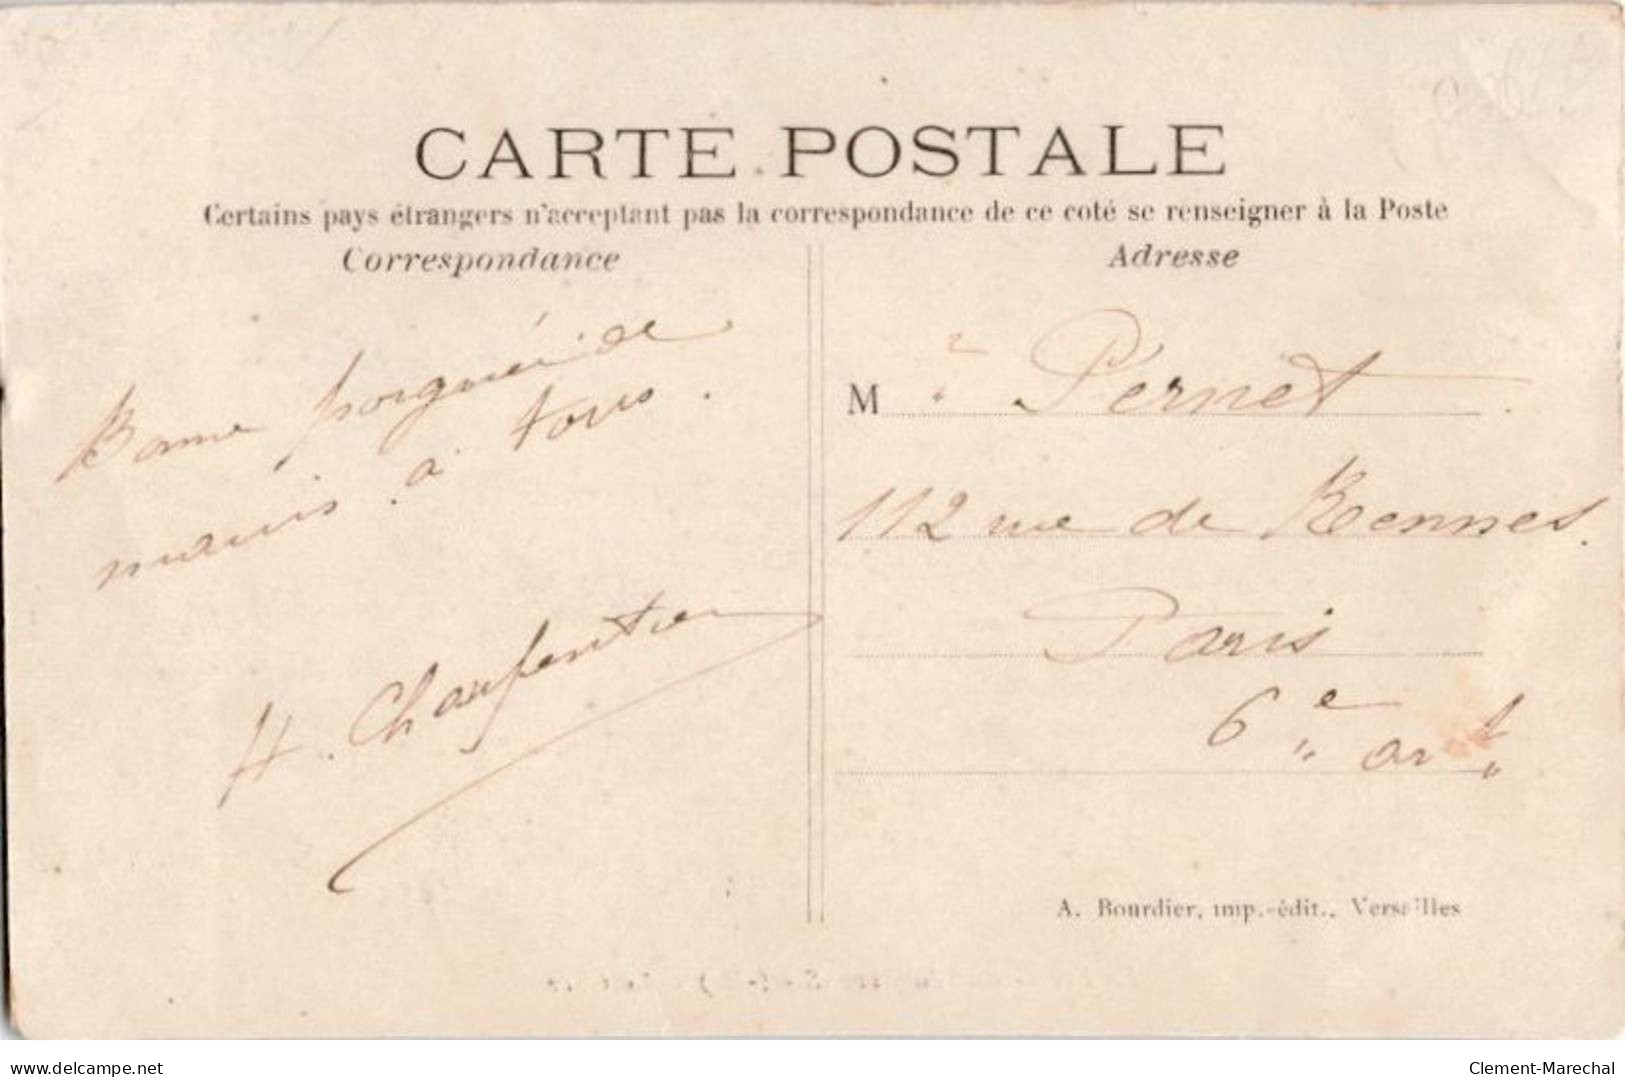 CARTE POSTALE
Certains pays étrangers n'acceptant pas la correspondance de ce coté se renseigner à la Poste
Correspondance
Adresse
Bonne poignée de
mains à tous.
H. Charpentier
M r Pernet
112 rue de Rennes.
Paris
6e art
A. Bourdier, imp.-édit., Versailles
delcampe.net
Clement-Marechal